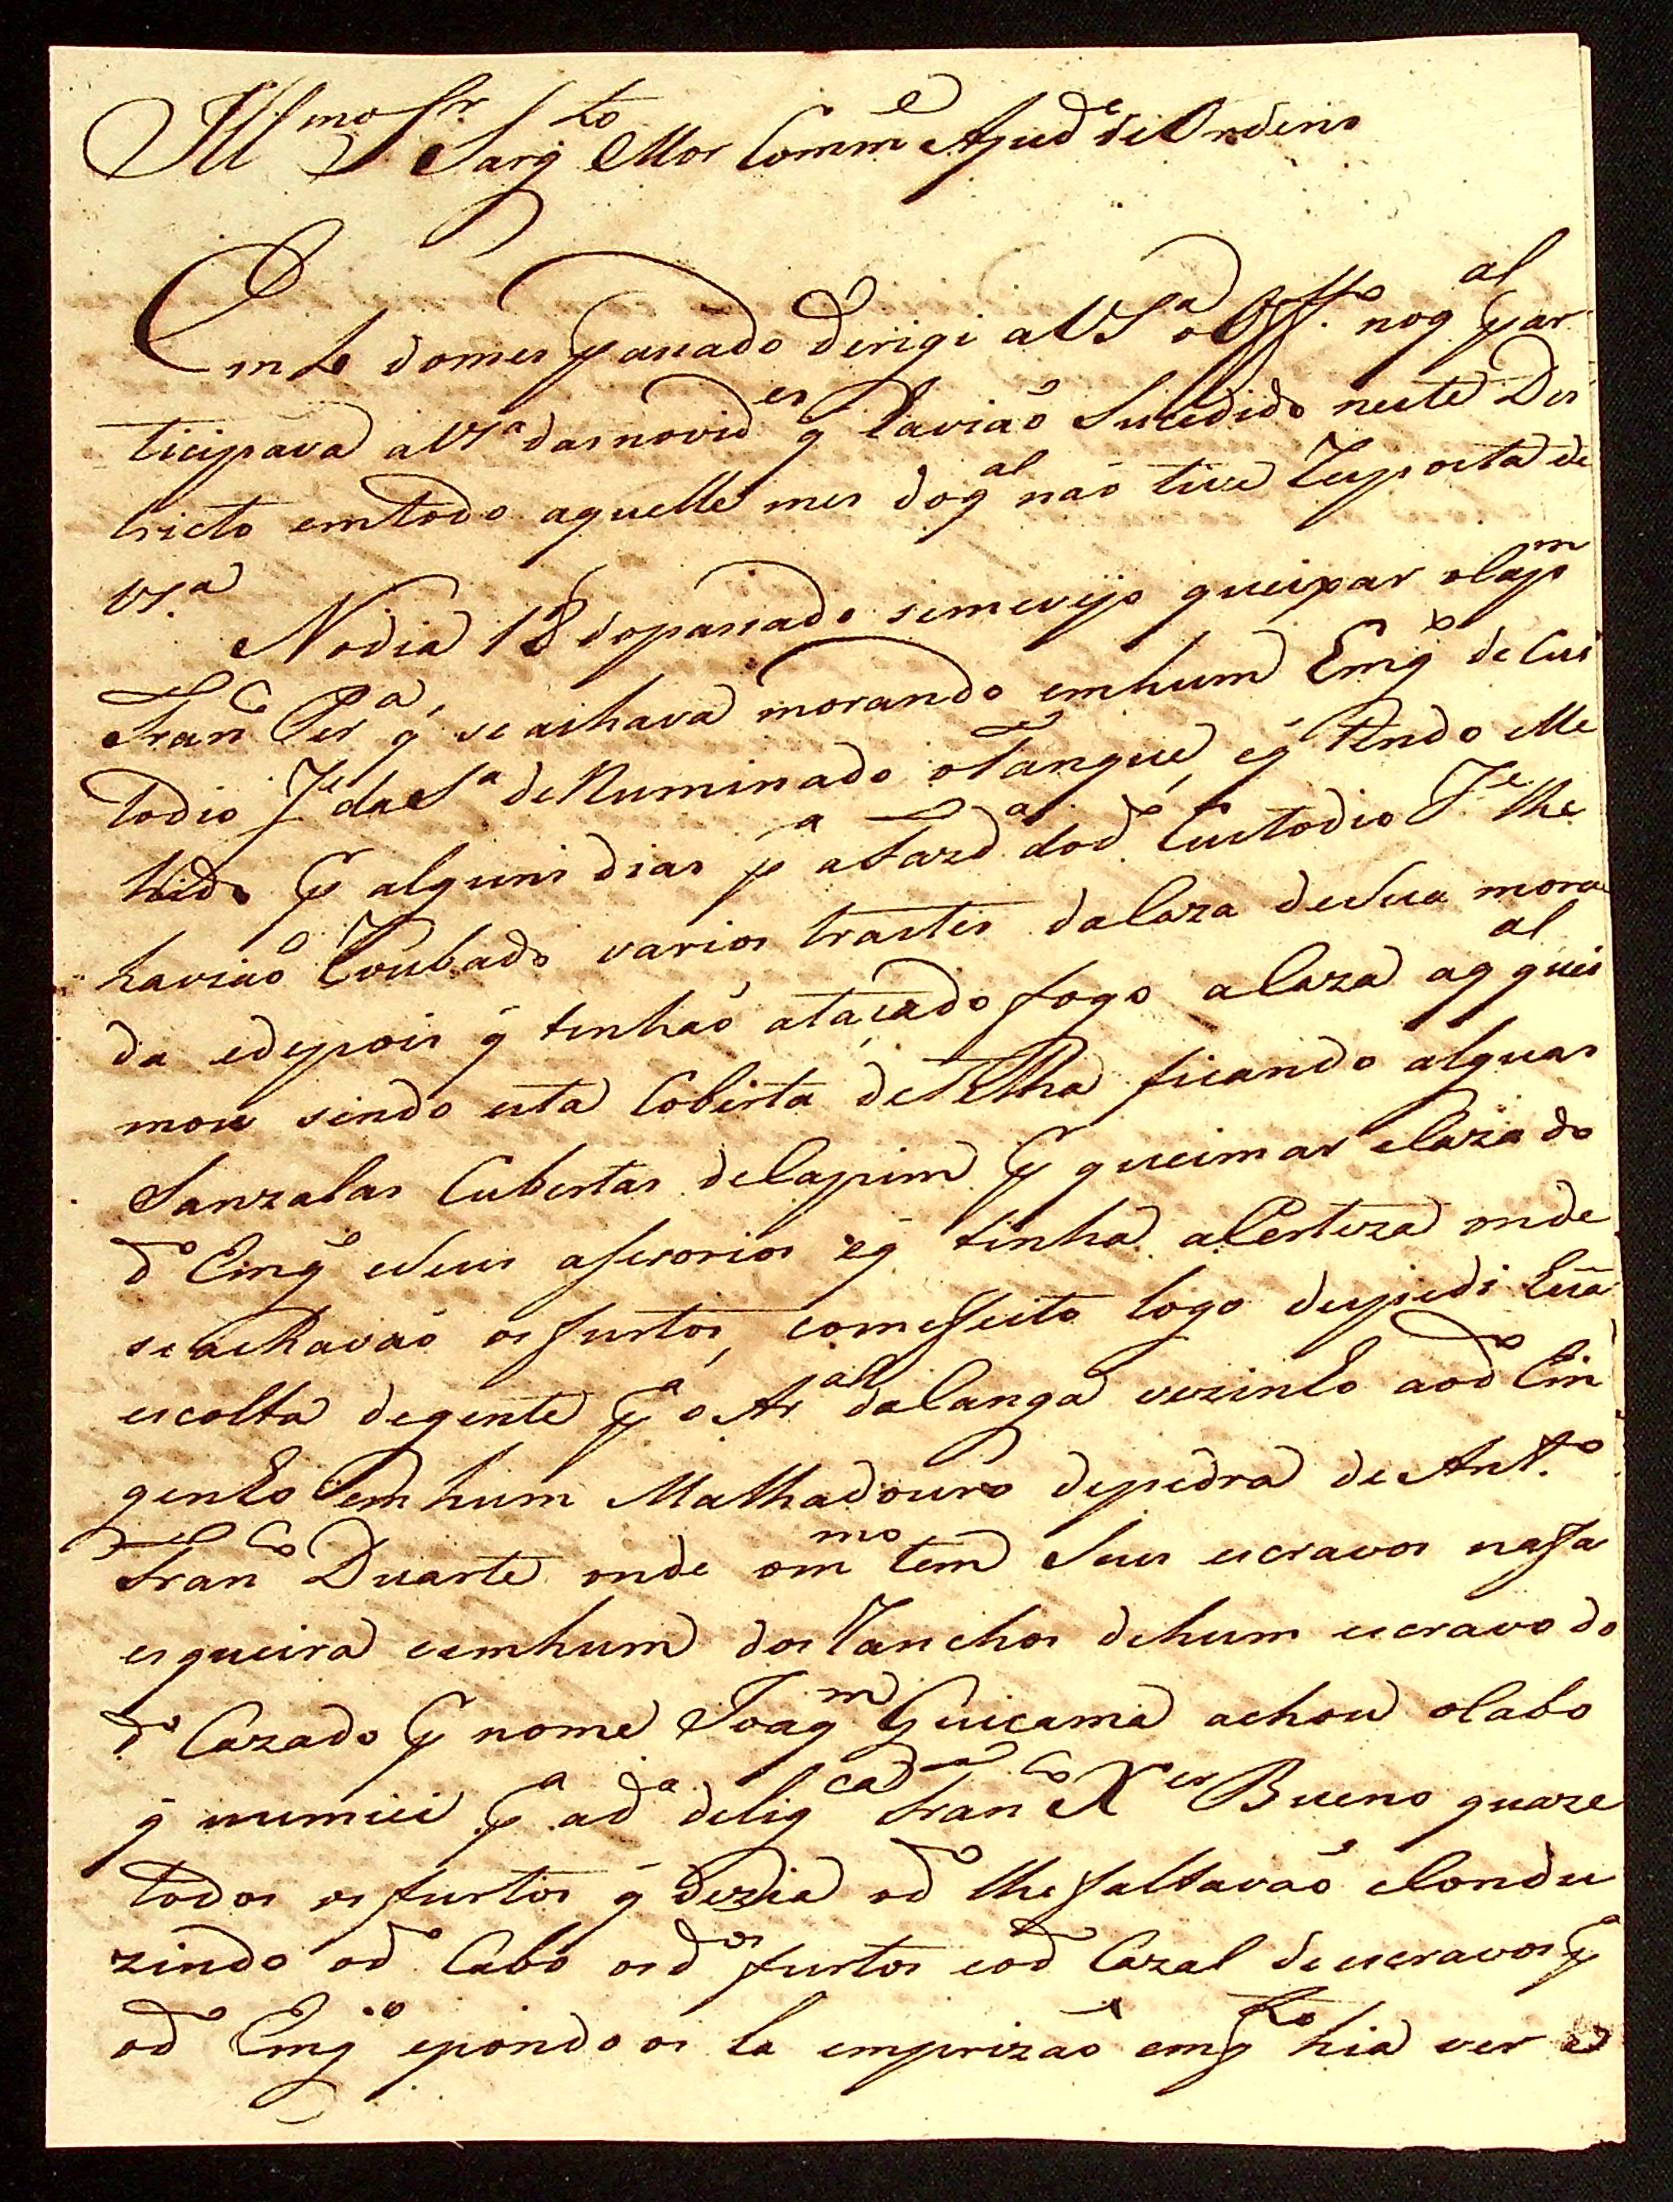 Ill.mo Sr. Sarg.to Mor Comm.e Ajud.e de Ordens
Em 1.o do mes passado derigi a VS.a o Off.o no q.al par
ticipava a VS.a das novid.es q̃ havião Sucedido neste Des
tricto em todo aquelle mes do q.al não tive Resposta de
VS.a
No dia 18 do passado se me veyo queixar o Cap.m
Fran.co Per.a, q̃ se achava morando em hum Emg.o de Cus
todio J.e da S.a de Numinado o Tanque, e q̃ tendo Me
hido p̃ alguns dias p.a a Fazd.a do d.o Custodio J.e lhe
havião Roubado varios trastes da Caza de Sua mora
da e depois q̃ tinhão atacado fogo a Caza a q.al quei
mou sendo esta Coberta de Telha ficando algũas
Sanzalas Cubertas de Capim p̃ queimar e Caza do
d.o Emg.o e Seus aserorios e q̃ tinha a Certeza onde
se achavão os furtos, com efeito logo despedi hũa
escolta de gente p.a o Ar.al da Canga vezinho ao d.o En
genho e em hum Malhadouro de pedra de Ant.o
Fran.co Duarte onde o m.mo tem Seus escravos na fa
esqueira e em hum dos Ranchos de hum escravo do
d.o Cazado p̃ nome Joaq.m Guicama achou o Cabo
q̃ numiei p.a a d.a delig.ca o Cad.a Fran.co X.er Bueno quaze
todos os furtos q̃ dezia o d.o lhe faltavão e Condu
zindo o d.o Cabo os d.os furtos e o d.o Cazal de escravos p.a
o d.o Emg.o e pondo os la em prizão emq.to hia ver a